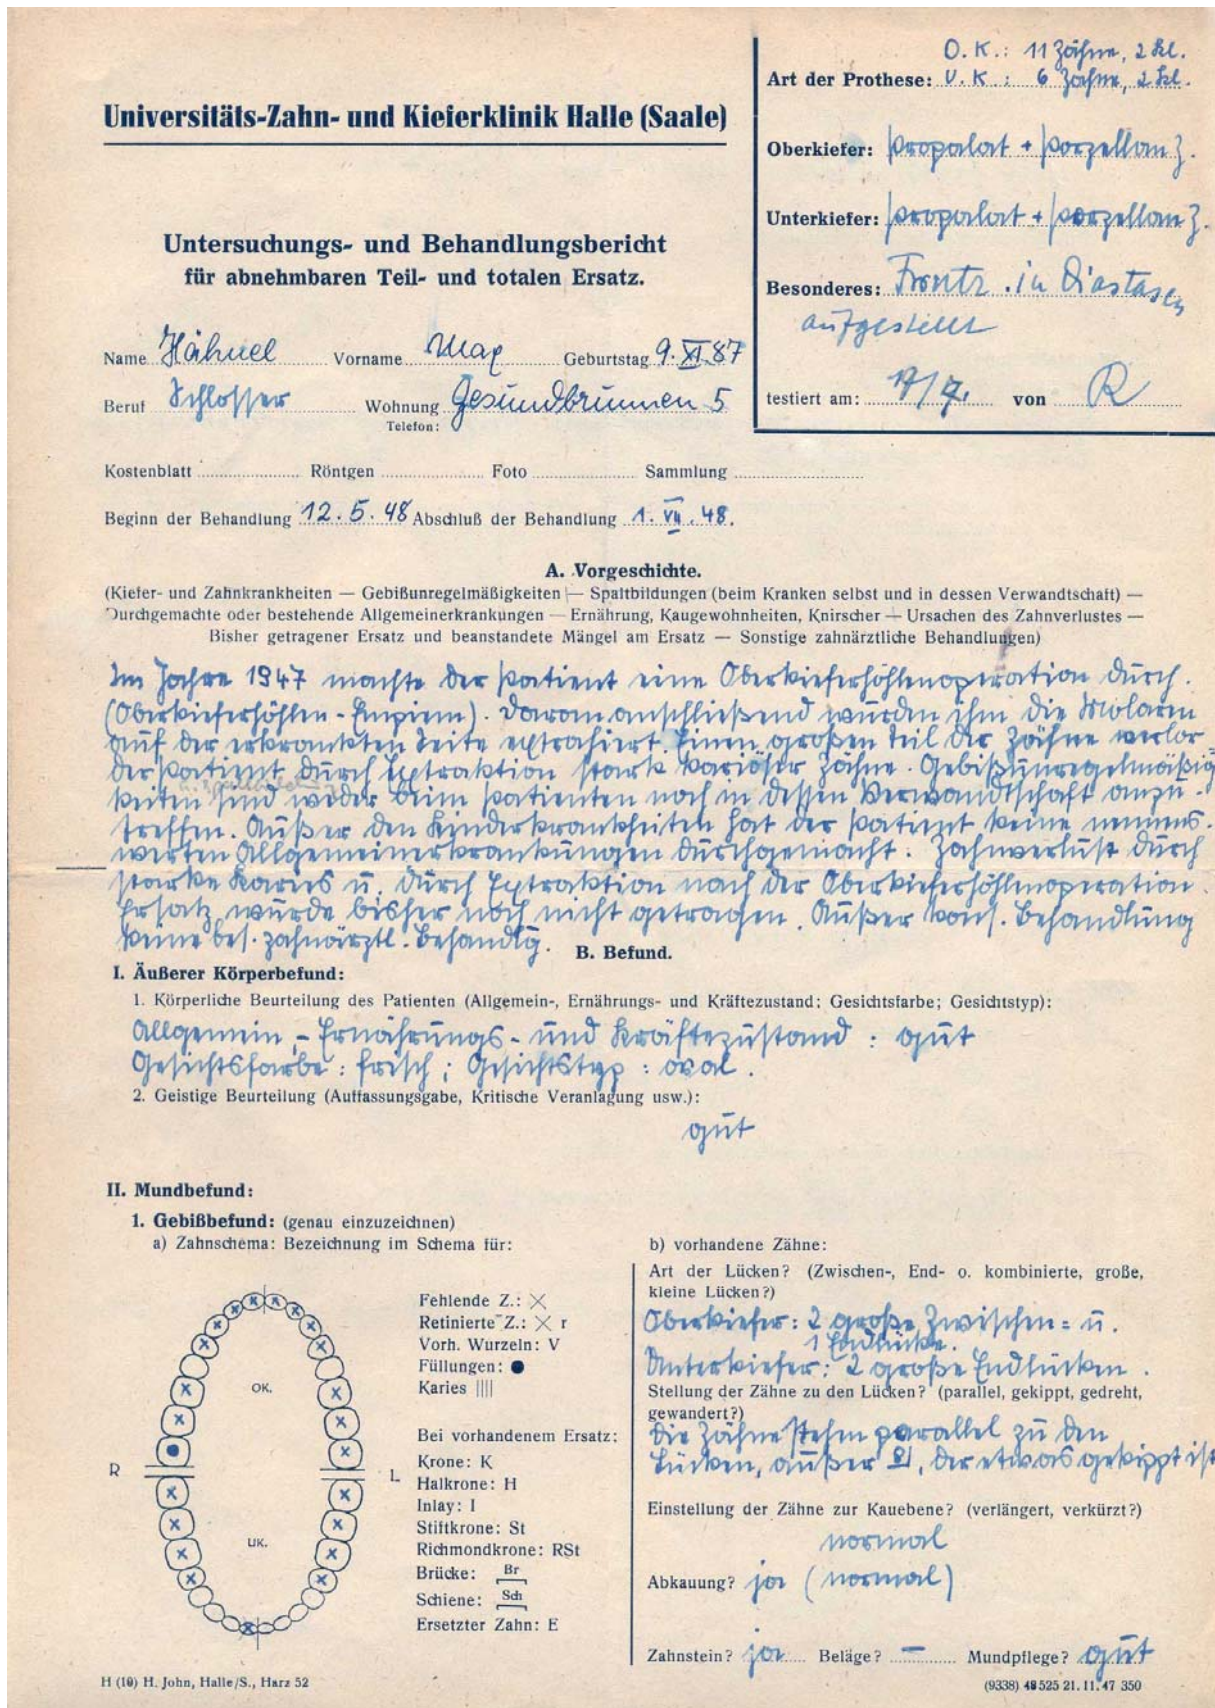 O.K.: 11 Zähne, 2 Kl.
Art der Prothese: U.K.: 6 Zähne, 2 Kl.
Universitäts-Zahn- und Kieferklinik Halle (Saale)
Oberkiefer: Propalat + Porzellan Z.
Unterkiefer: Propalat + Porzellan Z.
Untersuchungs- und Behandlungsbericht
für abnehmbaren Teil- und totalen Ersatz.
Besonderes: Frontz. in Diastasen
aufgestellt
Name Hähnel Vorname Max Geburtstag 9. XI. 87
Beruf Schlosser Wohnung Gesundbrunnen 5
Telefon:
testiert am: 17/7. von R
Kostenblatt Röntgen Foto Sammlung
Beginn der Behandlung 12. 5. 48 Abschluß der Behandlung 1. VII. 48.
A. Vorgeschichte.
(Kiefer- und Zahnkrankheiten — Gebißunregelmäßigkeiten — Spaltbildungen (beim Kranken selbst und in dessen Verwandtschaft) —
Durchgemachte oder bestehende Allgemeinerkrankungen — Ernährung, Kaugewohnheiten, Knirscher — Ursachen des Zahnverlustes —
Bisher getragener Ersatz und beanstandete Mängel am Ersatz — Sonstige zahnärztliche Behandlungen)
Im Jahre 1947 machte der Patient eine Oberkieferhöhlenoperation durch.
(Oberkieferhöhlen-Empiem). Daran anschließend wurden ihm die Molaren
auf der erkrankten Seite extrahiert. Einen großen Teil der Zähne verlor
der Patient durch Extraktion stark kariöser Zähne. Gebißunregelmäßig
keiten sind weder beim Patienten noch in dessen Verwandtschaft anzu-
treffen. Außer den Kinderkrankheiten hat der Patient keine nennens-
werten Allgemeinerkrankungen durchgemacht. Zahnverlust durch
starke Karies u. durch Extraktion nach der Oberkieferhöhlenoperation.
Ersatz wurde bisher noch nicht getragen. Außer kons. Behandlung
keine bes. zahnärztl. Behandlg.
B. Befund.
I. Äußerer Körperbefund:
1. Körperliche Beurteilung des Patienten (Allgemein-, Ernährungs- und Kräftezustand; Gesichtsfarbe; Gesichtstyp):
Allgemein-, Ernährungs- und Kräftezustand: gut
Gesichtsfarbe: frisch; Gesichtstyp: oval.
2. Geistige Beurteilung (Auffassungsgabe, Kritische Veranlagung usw.):
gut
II. Mundbefund:
1. Gebißbefund: (genau einzuzeichnen)
a) Zahnschema: Bezeichnung im Schema für:
Fehlende Z.: X
Retinierte Z.: X r
Vorh. Wurzeln: V
Füllungen: ●
Karies ||||
Bei vorhandenem Ersatz:
Krone: K
Halkrone: H
Inlay: I
Stiftkrone: St
Richmondkrone: RSt
Brücke: Br
Schiene: Sch
Ersetzter Zahn: E
OK.
R L
UK.
b) vorhandene Zähne:
Art der Lücken? (Zwischen-, End- o. kombinierte, große,
kleine Lücken?)
Oberkiefer: 2 große Zwischen- u.
1 Endlücke.
Unterkiefer: 2 große Endlücken.
Stellung der Zähne zu den Lücken? (parallel, gekippt, gedreht,
gewandert?)
Die Zähne stehen parallel zu den
Lücken, außer 8|, der etwas gekippt ist
Einstellung der Zähne zur Kauebene? (verlängert, verkürzt?)
normal
Abkauung? ja (normal)
Zahnstein? ja Beläge? — Mundpflege? gut
H (10) H. John, Halle/S., Harz 52
(9338) 48525 21. 11. 47 350